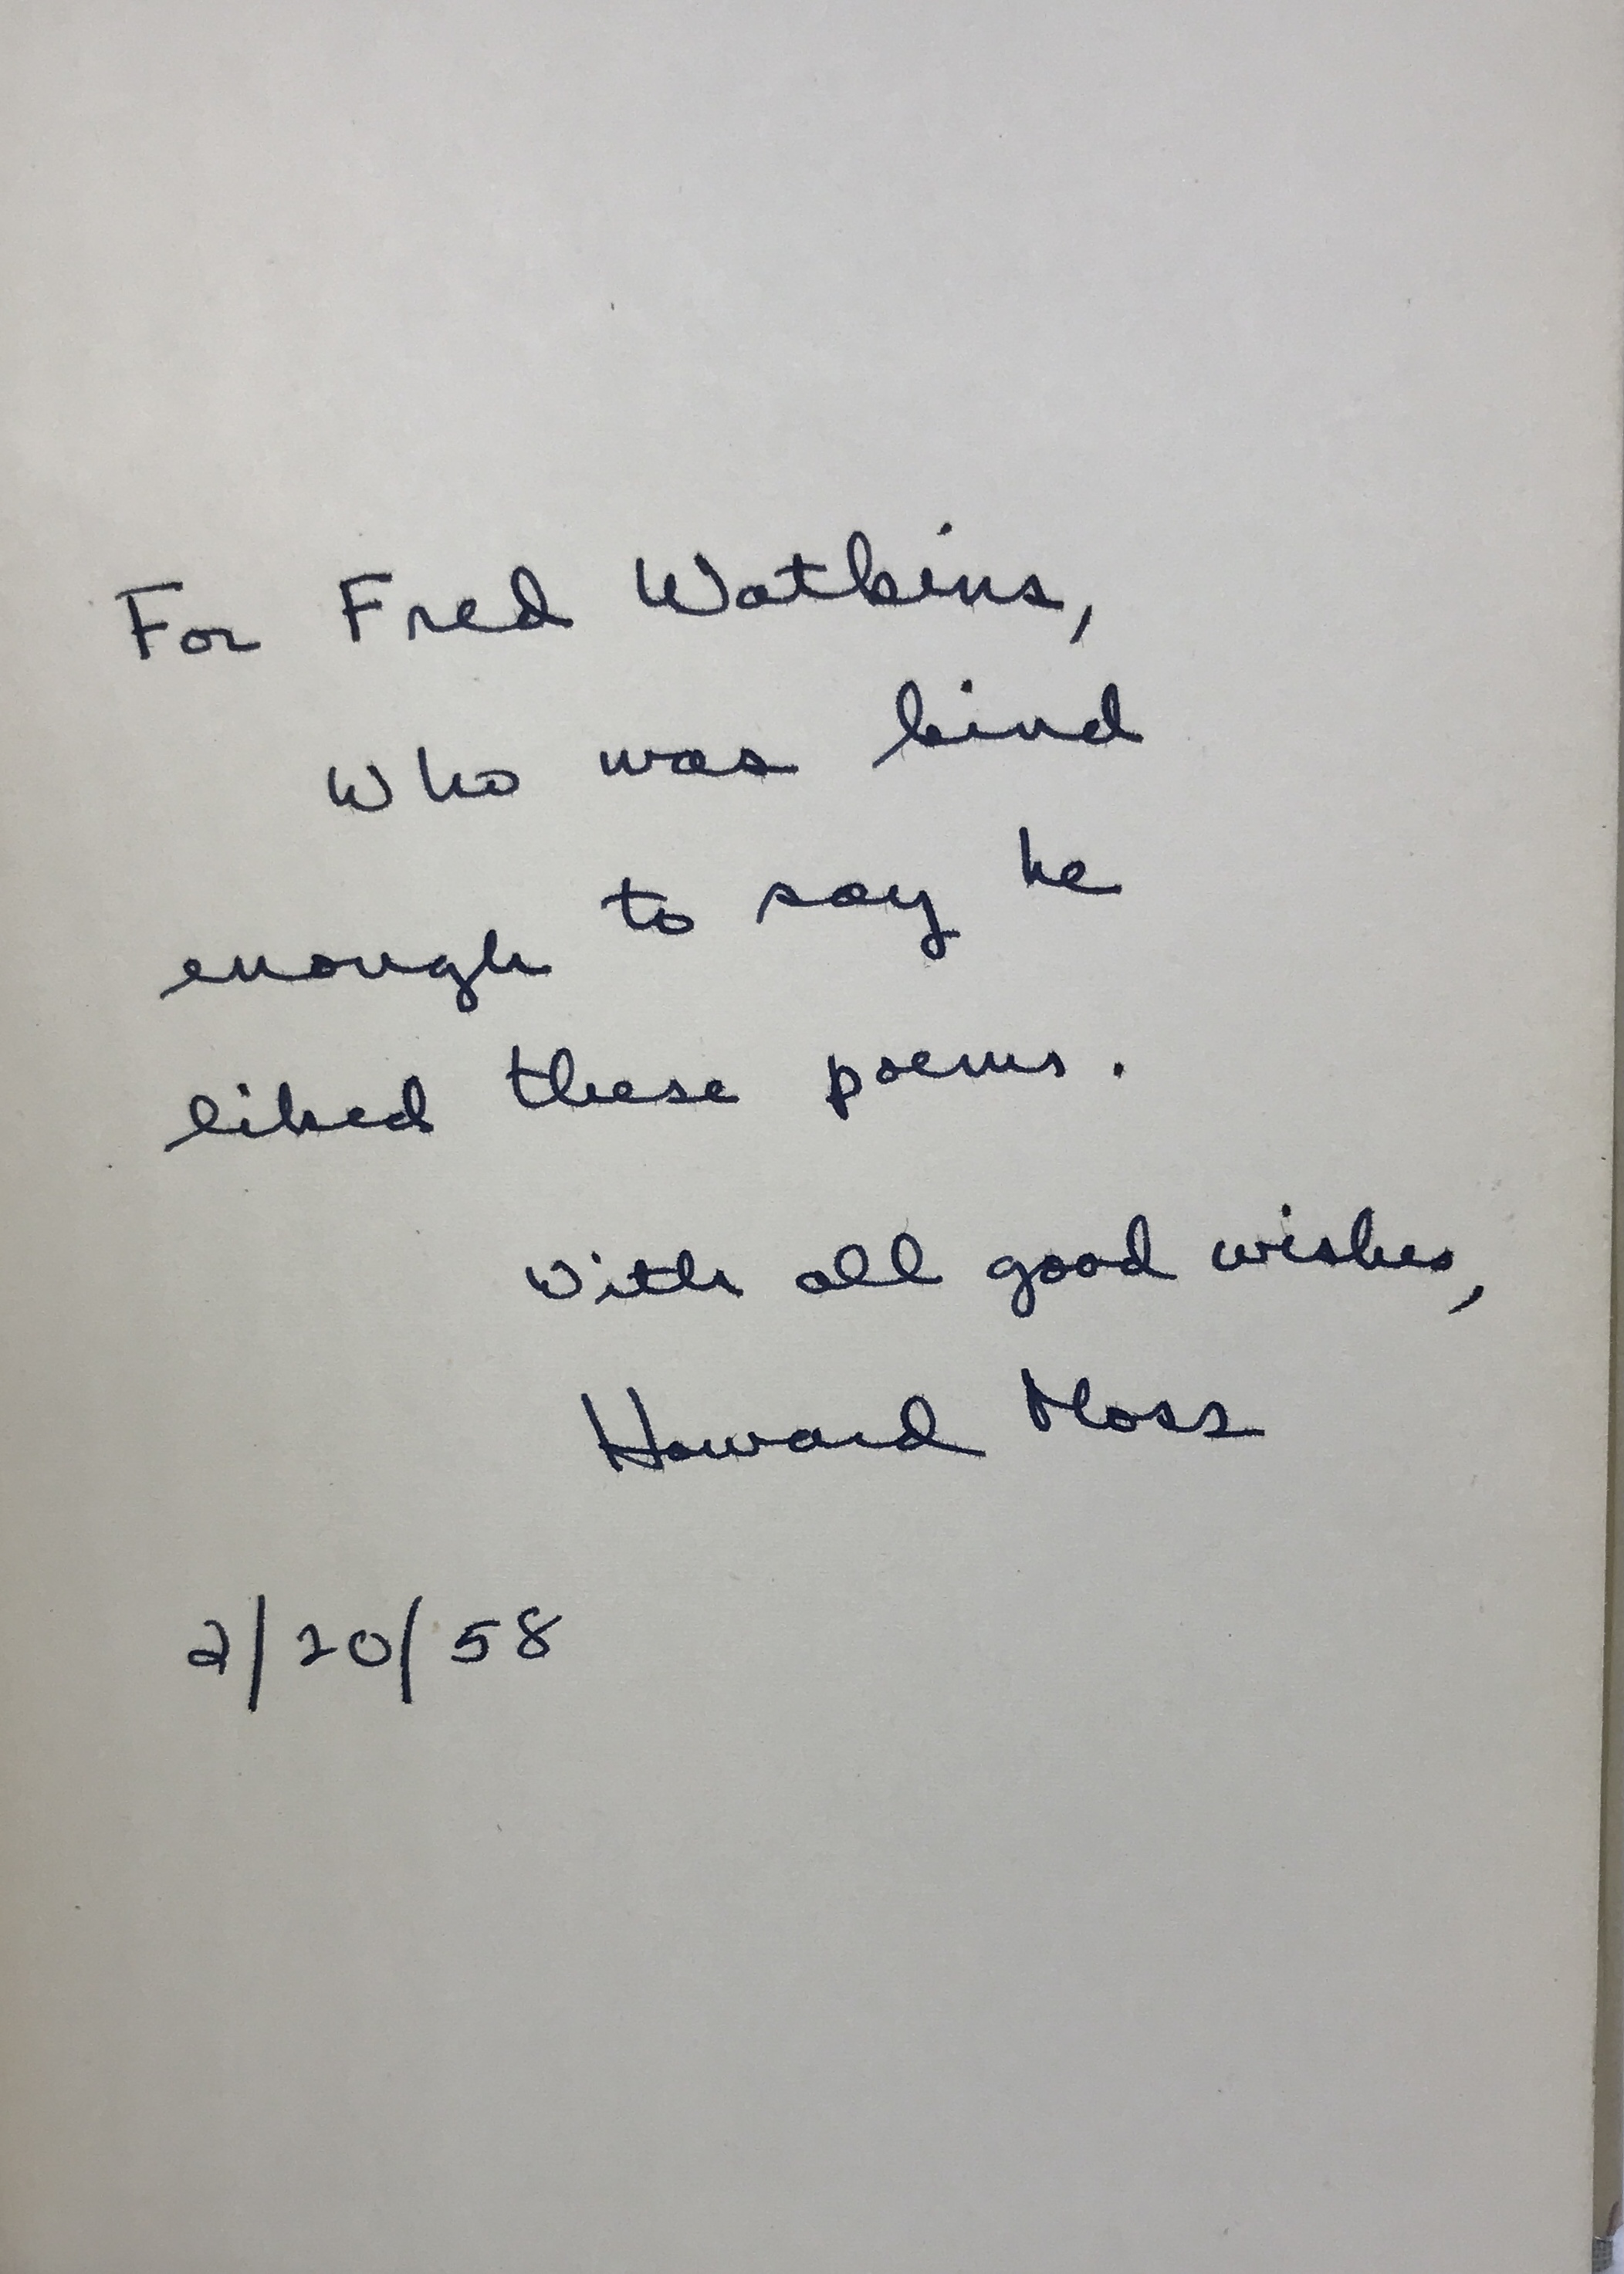 For Fred Watkins,
who was kind
enough to say he
liked these poems.
With all good wishes,
Howard Moss
2/20/58